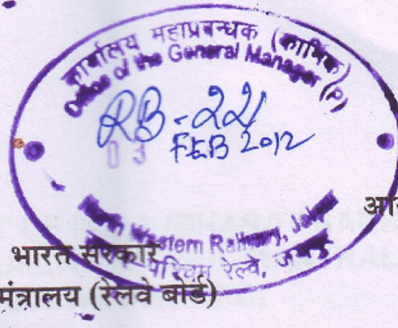 कार्यालय महाप्रबन्धक (कार्मिक)
Office of the General Manager (P)
RB-22
03
FEB 2012
Western Railway,
पश्चिम रेल्वे,
भारत सरकार
मंत्रालय (रेलवे बोर्ड)